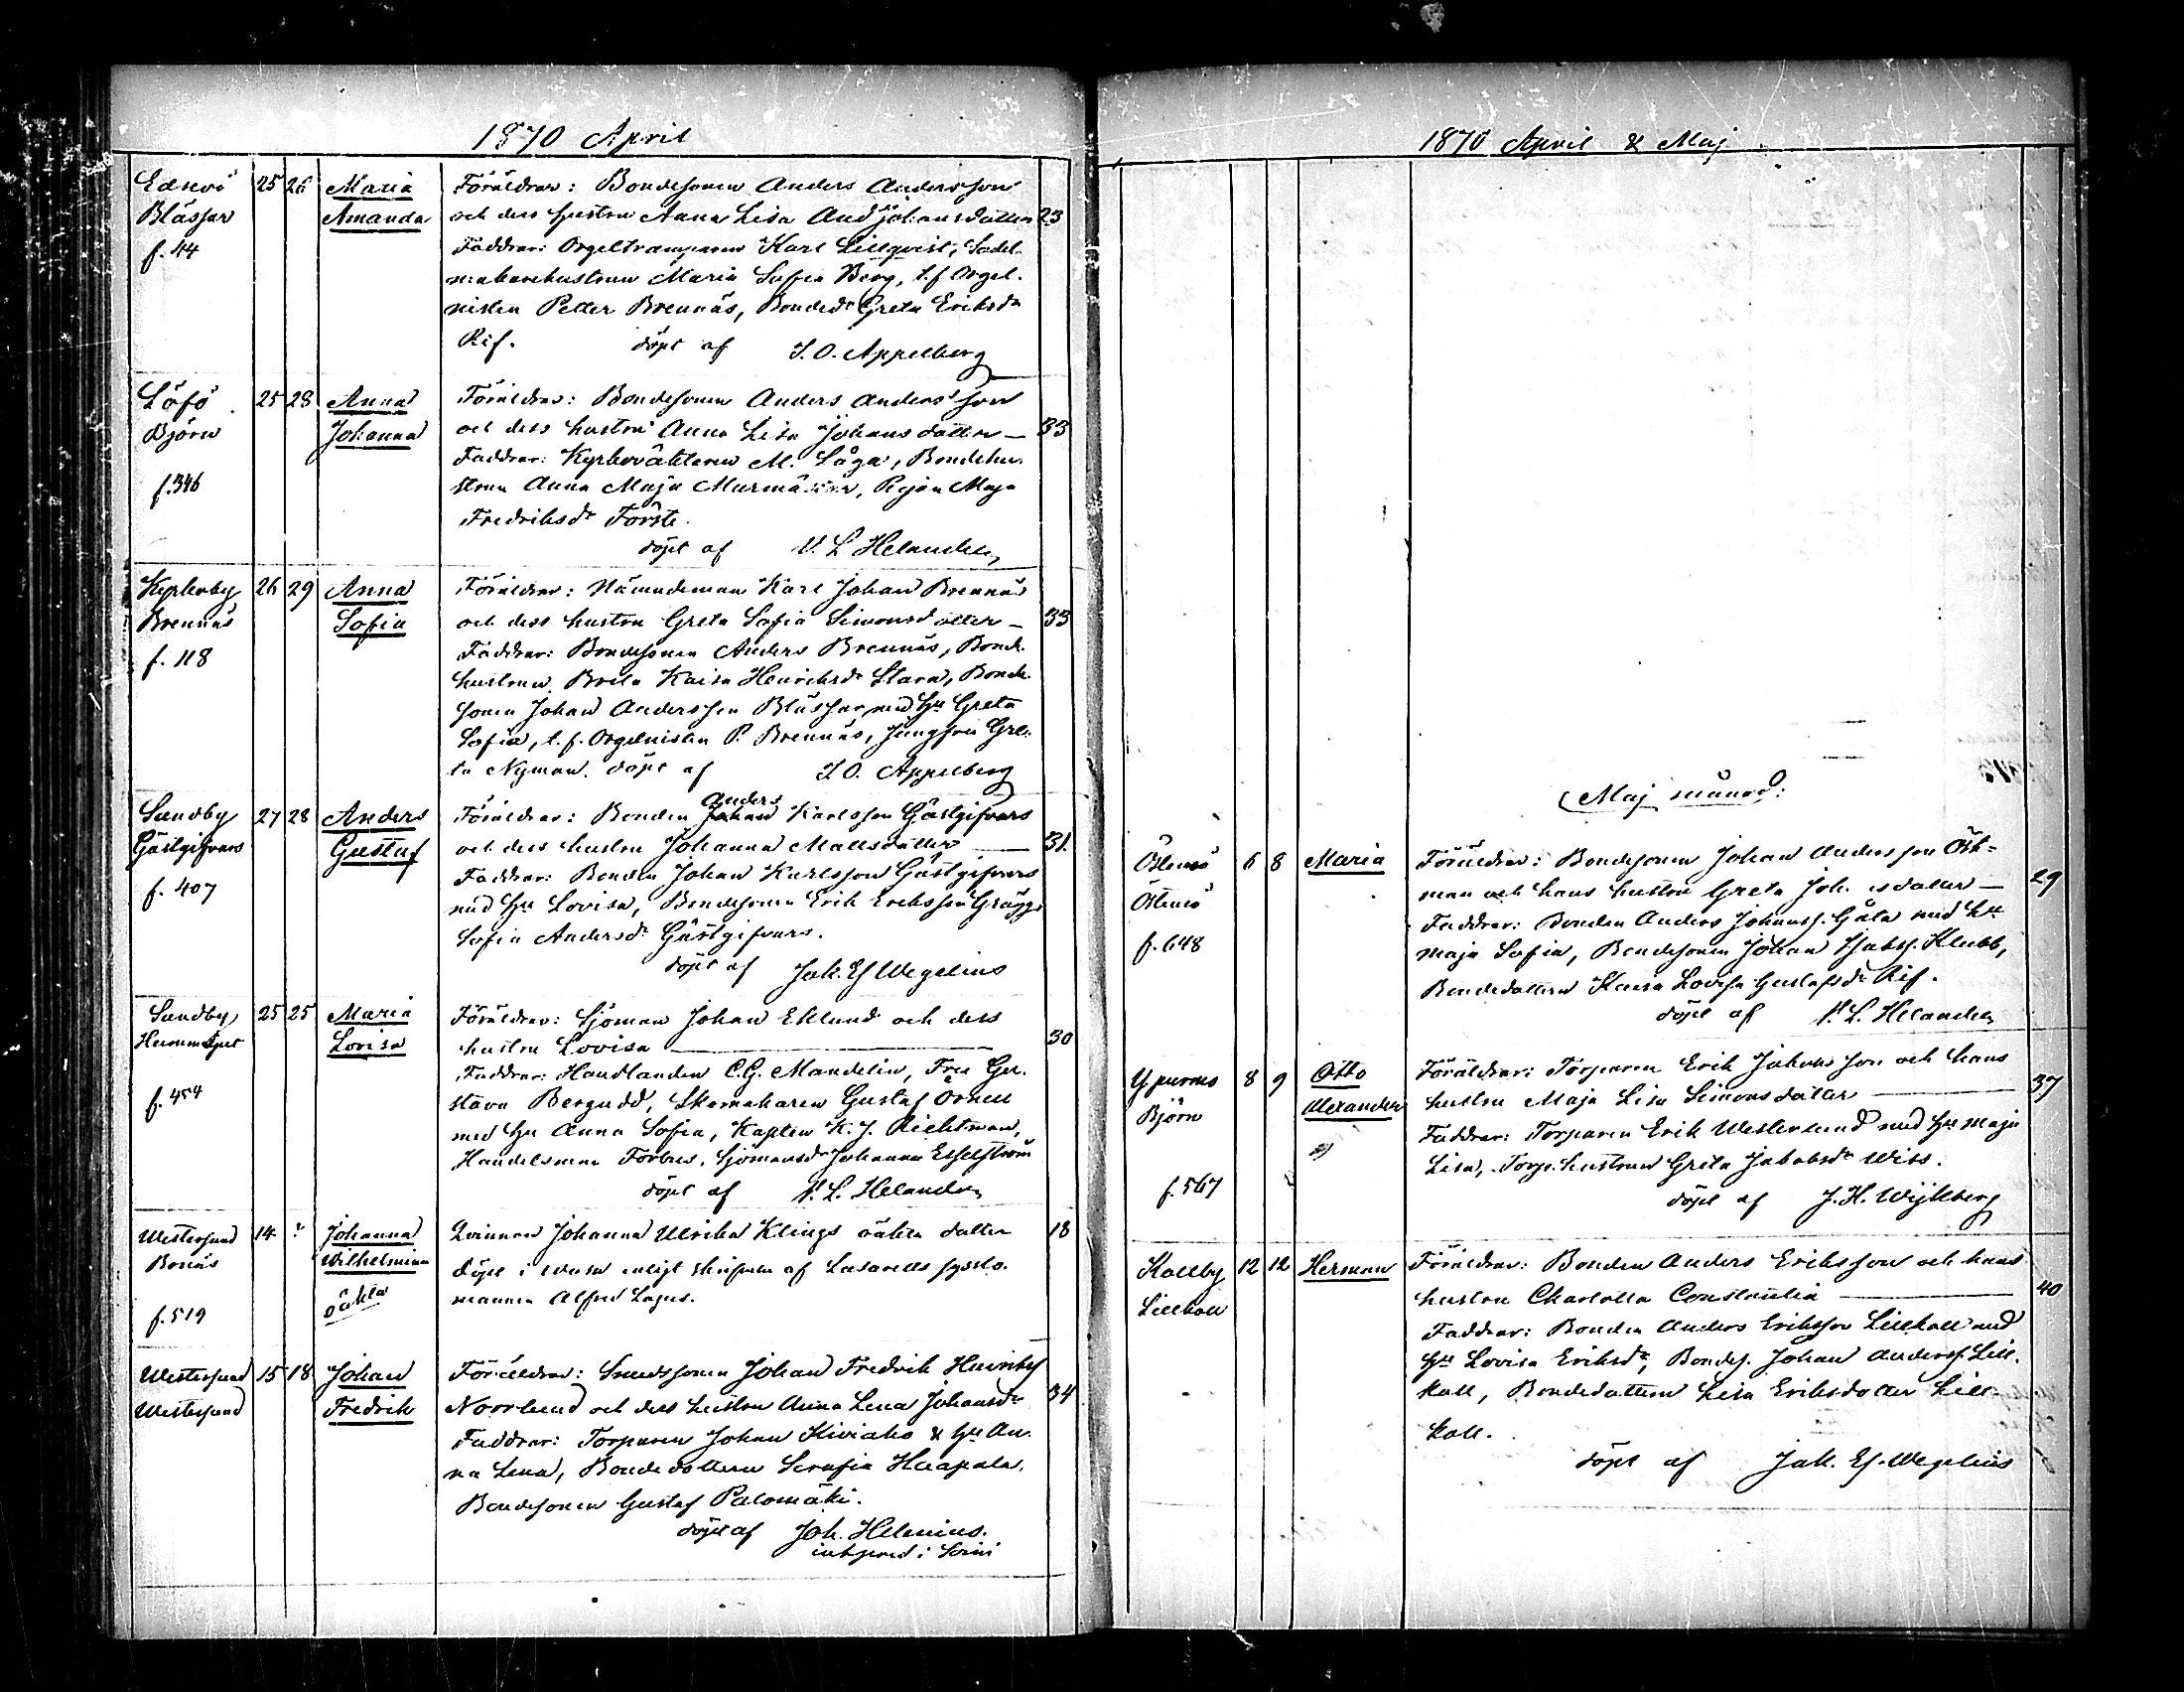 1870 April
Edsevö 25 26 Maria Föräldrar: Bondesonen Anders Andersson
Blässar Amanda och dess hustru Anna Lisa And Johansdotter 23
f. 44 Faddrar: Orgeltramparen Karl Lillqvist, Sadel-
makarehustrun Maria Sofia Berg, t.f. Orgel-
nisten Petter Brennäs, Bonded:r Greta Eriksd:r
Rif. döpt af I.O. Appelberg
Löfö 25 28 Anna Föräldrar: Bondesonen Anders Andersson
Björn Johanna och dess hustru Anna Lisa Johansdotter — 33
Faddrar: Kyrkoväktaren M. Låga, Bondehu-
f. 346 strun Anna Maja Murmästar, Pigan Maja
Fredriksd:r Förste.
döpt af V. L. Helander
Kyrkoby 26 29 Anna Föräldrar: Nämndeman Karl Johan Brennäs
Brennäs Sofia och dess hustru Greta Sofia Simonsdotter — 33
f. 118 Faddrar: Bondesonen Anders Brennäs, Bonde-
hustrun Brita Kaisa Henriksd:r Stara, Bonde-
sonen Johan Andersson Blässar med H:u Greta
Sofia, t. f. Orgelnisten P. Brennäs, Jungfru Gre-
ta Nyman. döpt af I.O. Appelberg
Anders
Sundby 27 28 Anders Föräldrar: Bonden Johan Karlsson Gästgifvars
Gästgifvars Gustaf och dess hustru Johanna Mattsdotter — 31.
f. 407 Faddrar: Bonden Johan Karlsson Gästgifvars
med H:u Lovisa, Bondesonen Erik Eriksson Gräggs
Sofia Andersd:r Gästgifvars.
döpt af Jak. Ef Wegelius
Sundby 25 25 Maria Föräldrar: Sjöman Johan Eklund och dess
Lovisa hustru Lovisa — 30
Faddrar: Handlanden C.G. Mandelin, Fru Gu-
f. 454 stava Bergudd, Skomakaren Gustaf Örnell
med H:u Anna Sofia, Kapten K. J. Richtman,
Handelsman Forbus, Sjömansd:r Johanna Esselström
döpt af V. L. Helander
Westersund 14 ? Johanna Qvinnan Johanna Ulrika Klings oäkta dotter 18
Bonäs Wilhelmina döpt i Wasa enligt skrifvelse af Lasaretts sysslo-
f. 519 oäkta mannen Alfred Lagus.
Westersund 15 18 Johan Föräldrar: Smedssonen Johan Fredrik
Westersund Fredrik Norrlund och dess hustru Anna Lena Johansd:r 34
Faddrar: Torparen Johan Kiviaho & H:u An-
na Lena, Bondedottern Serafia Haapala,
Bondesonen Gustaf Palomäki.
döpt af Joh. Helenius.
1870 April & Maj
Maj månad:
Östensö 6 8 Maria Föräldrar: Bondesonen Johan Andersson Öst-
Östensö man och hans hustru Greta Joh. dotter — 29
f. 648 Faddrar: Bonden Anders Johanss. Gåla med H:u
Maja Sofia, Bondesonen Johan Klubb,
Bondedottern Kaisa Lovisa Gustafsd:r Rif.
döpt af V. L. Helander
Ypurnes 8 9 Otto Föräldrar: Torparen Erik Jakobsson och hans
Björn Alexander hustru Maja Lisa Simonsdotter — 37
Faddrar: Torparen Erik Westerlund med H:u Maja
f. 567 Lisa, Torp.hustrun Greta Jakobsd:r Wiss.
döpt af J. H. Wijkberg
Kållby 12 12 Herman Föräldrar: Bonden Anders Eriksson och hans
Lillkåll hustru Charlotta Constantia — 40
Faddrar: Bonden Anders Eriksson Lillkåll med
H:u Lovisa Eriksd:r, Bondes. Johan Anderss. Lill-
kåll, Bondedottern Lisa Eriksdotter Lill-
kåll.
döpt af Jak. Ef. Wegelius